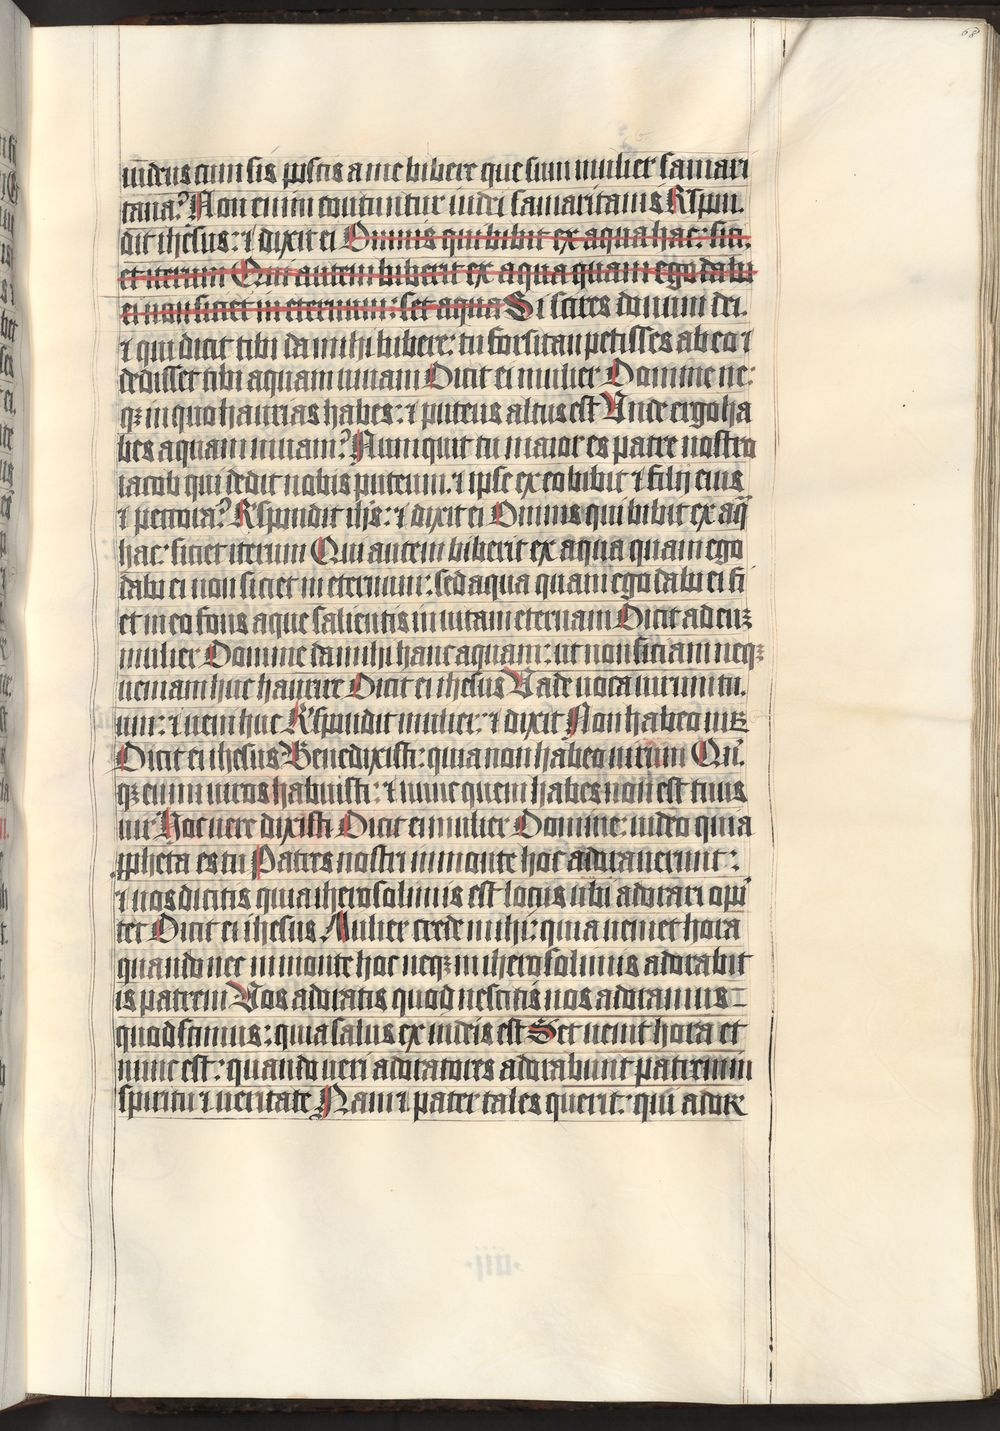 68
iudeus cum sis poscis a me bibere que sum mulier samari
tana? Non enim coutuntur iudei samaritanis Rn̄spon.
dit ihesus: ⁊ dixit ei Omnis qui bibit ex aqua hac: siti.
et iterum Qui autem biberit ex aqua quam ego dabo
ei non sitiet in eternum: set aqua Si scires donum dei.
⁊ qui dicit tibi da mihi bibere: tu forsitan petisses ab eo ⁊
dedisset tibi aquam uiuam Dicit ei mulier Domine ne:
qꝫ in quo haurias habes: ⁊ puteus altus est Unde ergo ha
bes aquam uiuam? Numquit tu maior es patre nostro
iacob qui dedit nobis puteum. ⁊ ipse ex eo bibit ⁊ filij eius
⁊ pecora? Rn̄spondit ihs̄: ⁊ dixit ei Omnis qui bibit ex aq̄
hac: sitiet iterum Qui autem biberit ex aqua quam ego
dabo ei non sitiet in eternum: sed aqua quam ego dabo ei fi
et in eo fons aque salientis in uitam eternam Dicit ad euꝫ
mulier Domine da mihi hanc aquam: ut non sitiam neqꝫ
ueniam huc haurire Dicit ei ihesus Vade uoca uirum tu.
um: ⁊ ueni huc Rn̄spondit mulier: ⁊ dixit Non habeo uiꝝ
Dicit ei ihesus Benedixisti: quia non habeo uirum Qn̄.
qꝫ enim uiros habuisti: ⁊ nunc quem habes non est tuus
uir Hoc uere dixisti Dicit ei mulier Domine: uideo quia
ꝓpheta es tu Patres nostri in monte hoc adorauerunt:
⁊ uos dicitis quia iherosolimis est locus ubi adorari opor̄
tet Dicit ei ihesus Mulier crede mihi: quia ueniet hora
quando nec in monte hoc neqꝫ in iherosolimis adorabit
is patrem Vos adoratis quod nescitis nos adoramus
quod scimus: quia salus ex iudeis est Set uenit hora et
nunc est: quando ueri adoratores adorabunt patrem in
spiritu ⁊ ueritate Nam ⁊ pater tales querit: qui adoꝛ